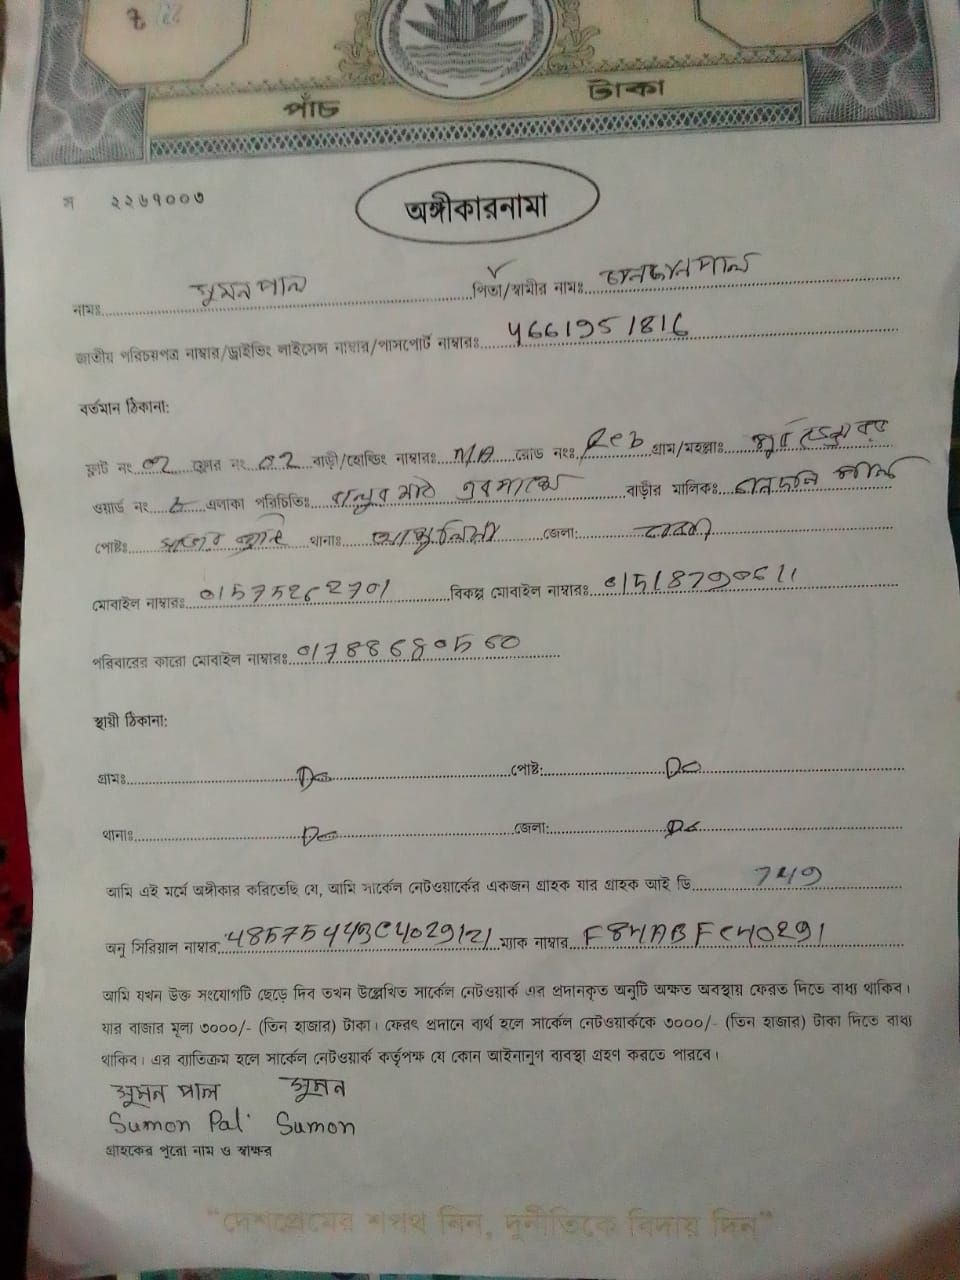 পাঁচ টাকা
স ২২৬৭০০৩
অঙ্গীকারনামা
নামঃ সুমন পাল পিতা/স্বামীর নামঃ পাল
জাতীয় পরিচয়পত্র নাম্বার/ড্রাইভিং লাইসেন্স নাম্বার/পাসপোর্ট নাম্বারঃ 4661951816
বর্তমান ঠিকানা:
ফ্লাট নং ০২ ফ্লোর নং ০২ বাড়ী/হোল্ডিং নাম্বারঃ N/A রোড নংঃ গ্রাম/মহল্লাঃ পূর্ব
ওয়ার্ড নং এলাকা পরিচিতিঃ মাঠ এর পাশে বাড়ীর মালিকঃ পাল
পোষ্টঃ থানাঃ আশুলিয়া জেলা: ঢাকা
মোবাইল নাম্বারঃ 01575262701 বিকল্প মোবাইল নাম্বারঃ
পরিবারের কারো মোবাইল নাম্বারঃ 01788680560
স্থায়ী ঠিকানা:
গ্রামঃ Do পোষ্ট: Do
থানাঃ Do জেলা: Do
আমি এই মর্মে অঙ্গীকার করিতেছি যে, আমি সার্কেল নেটওয়ার্কের একজন গ্রাহক যার গ্রাহক আই ডি 749
অনু সিরিয়াল নাম্বার 48575443C4029121 ম্যাক নাম্বার F84ABFC40291
আমি যখন উক্ত সংযোগটি ছেড়ে দিব তখন উল্লেখিত সার্কেল নেটওয়ার্ক এর প্রদানকৃত অনুটি অক্ষত অবস্থায় ফেরত দিতে বাধ্য থাকিব।
যার বাজার মূল্য ৩০০০/- (তিন হাজার) টাকা। ফেরৎ প্রদানে ব্যর্থ হলে সার্কেল নেটওয়ার্ককে ৩০০০/- (তিন হাজার) টাকা দিতে বাধ্য
থাকিব। এর ব্যতিক্রম হলে সার্কেল নেটওয়ার্ক কর্তৃপক্ষ যে কোন আইনানুগ ব্যবস্থা গ্রহণ করতে পারবে।
সুমন পাল সুমন
Sumon Pal Sumon
গ্রাহকের পুরো নাম ও স্বাক্ষর
“দেশপ্রেমের শপথ নিন, দুর্নীতিকে বিদায় দিন”